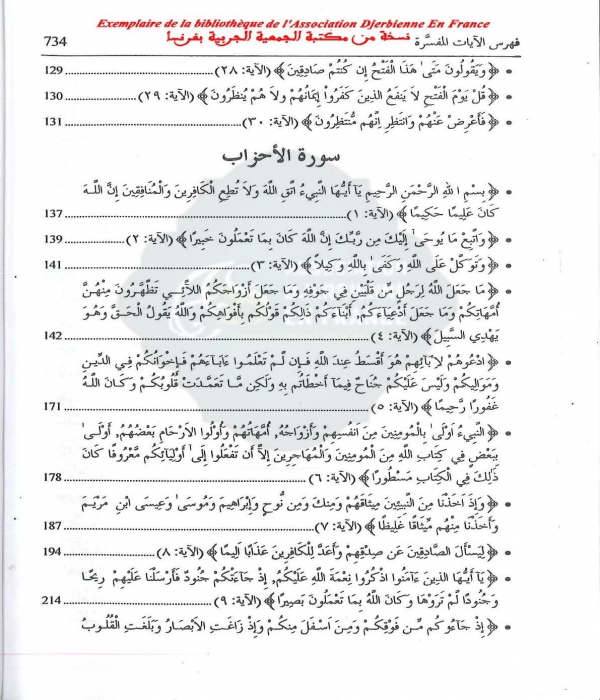 Exemplaire de la bibliothèque de l'Association Djerbienne En France
نسخة من مكتبة الجمعية الجربية بفرنسا
فهرس الآيات المفسَّرة 734
• ﴿وَيَقُولُونَ مَتَىٰ هَذَا الْفَتْحُ إِن كُنتُمْ صَادِقِينَ﴾ (الآية: ٢٨) ... 129
• ﴿قُلْ يَوْمَ الْفَتْحِ لَا يَنفَعُ الذِينَ كَفَرُواْ إِيمَانُهُمْ وَلاَ هُمْ يُنظَرُونَ﴾ (الآية: ٢٩) ... 130
• ﴿فَأَعْرِضْ عَنْهُمْ وَانتَظِرِ اِنَّهُم مُّنتَظِرُونَ﴾ (الآية: ٣٠) ... 131
سورة الأحزاب
• ﴿بِسْمِ اللهِ الرَّحْمَنِ الرَّحِيمِ يَآ أَيُّهَا النَّبِيءُ اتَّقِ اللَّهَ وَلاَ تُطِعِ الْكَافِرِينَ وَالْمُنَافِقِينَ إِنَّ اللَّهَ
كَانَ عَلِيمًا حَكِيمًا﴾ (الآية: ١) ... 137
• ﴿وَاتَّبِعْ مَا يُوحَىٰ إِلَيْكَ مِن رَّبِّكَ إِنَّ اللَّهَ كَانَ بِمَا تَعْمَلُونَ خَبِيرًا﴾ (الآية: ٢) ... 139
• ﴿وَتَوَكَّلْ عَلَى اللَّهِ وَكَفَىٰ بِاللَّهِ وَكِيلاً﴾ (الآية: ٣) ... 141
• ﴿مَا جَعَلَ اللَّهُ لِرَجُلٍ مِّن قَلْبَيْنِ فِي جَوْفِهِ وَمَا جَعَلَ أَزْوَاجَكُمُ اللاَّئِي تَظَّهَّرُونَ مِنْهُنَّ
أُمَّهَاتِكُمْ وَمَا جَعَلَ أَدْعِيَآءَكُمُ, أَبْنَآءَكُمْ ذَلِكُمْ قَوْلُكُم بِأَفْوَاهِكُمْ وَاللَّهُ يَقُولُ الْحَقَّ وَهُوَ
يَهْدِي السَّبِيلَ﴾ (الآية: ٤) ... 142
• ﴿ادْعُوهُمْ لِأَبَآئِهِمْ هُوَ أَقْسَطُ عِندَ اللَّهِ فَإِن لَّمْ تَعْلَمُواْ ءَابَآءَهُمْ فَإِخْوَانُكُمْ فِي الدِّينِ
وَمَوَالِيكُمْ وَلَيْسَ عَلَيْكُمْ جُنَاحٌ فِيمَآ أَخْطَأْتُم بِهِ وَلَكِن مَّا تَعَمَّدَتْ قُلُوبُكُمْ وَكَانَ اللَّهُ
غَفُورًا رَّحِيمًا﴾ (الآية: ٥) ... 171
• ﴿النَّبِيءُ أَوْلَىٰ بِالْمُومِنِينَ مِنَ اَنفُسِهِمْ وَأَزْوَاجُهُ, أُمَّهَاتُهُمْ وَأُوْلُواْ الاَرْحَامِ بَعْضُهُمُ, أَوْلَىٰ
بِبَعْضٍ فِي كِتَابِ اللَّهِ مِنَ الْمُومِنِينَ وَالْمُهَاجِرِينَ إِلاَّ أَن تَفْعَلُواْ إِلَىٰ أَوْلِيَآئِكُم مَّعْرُوفًا كَانَ
ذَالِكَ فِي الْكِتَابِ مَسْطُورًا﴾ (الآية: ٦) ... 178
• ﴿وَإِذَ اَخَذْنَا مِنَ النَّبِيئِينَ مِيثَاقَهُمْ وَمِنكَ وَمِن نُّوحٍ وَإِبْرَاهِيمَ وَمُوسَىٰ وَعِيسَى ابْنِ مَرْيَمَ
وَأَخَذْنَا مِنْهُم مِّيثَاقًا غَلِيظًا﴾ (الآية: ٧) ... 187
• ﴿لِّيَسْأَلَ الصَّادِقِينَ عَن صِدْقِهِمْ وَأَعَدَّ لِلْكَافِرِينَ عَذَابًا اَلِيمًا﴾ (الآية: ٨) ... 194
• ﴿يَآ أَيُّهَا الذِينَ ءَامَنُواْ اذْكُرُواْ نِعْمَةَ اللَّهِ عَلَيْكُمُ, إِذْ جَآءَتْكُمْ جُنُودٌ فَأَرْسَلْنَا عَلَيْهِمْ رِيحًا
وَجُنُودًا لَّمْ تَرَوْهَا وَكَانَ اللَّهُ بِمَا تَعْمَلُونَ بَصِيرًا﴾ (الآية: ٩) ... 214
• ﴿إِذْ جَآءُوكُم مِّن فَوْقِكُمْ وَمِنَ اَسْفَلَ مِنكُمْ وَإِذْ زَاغَتِ الاَبْصَارُ وَبَلَغَتِ الْقُلُوبُ